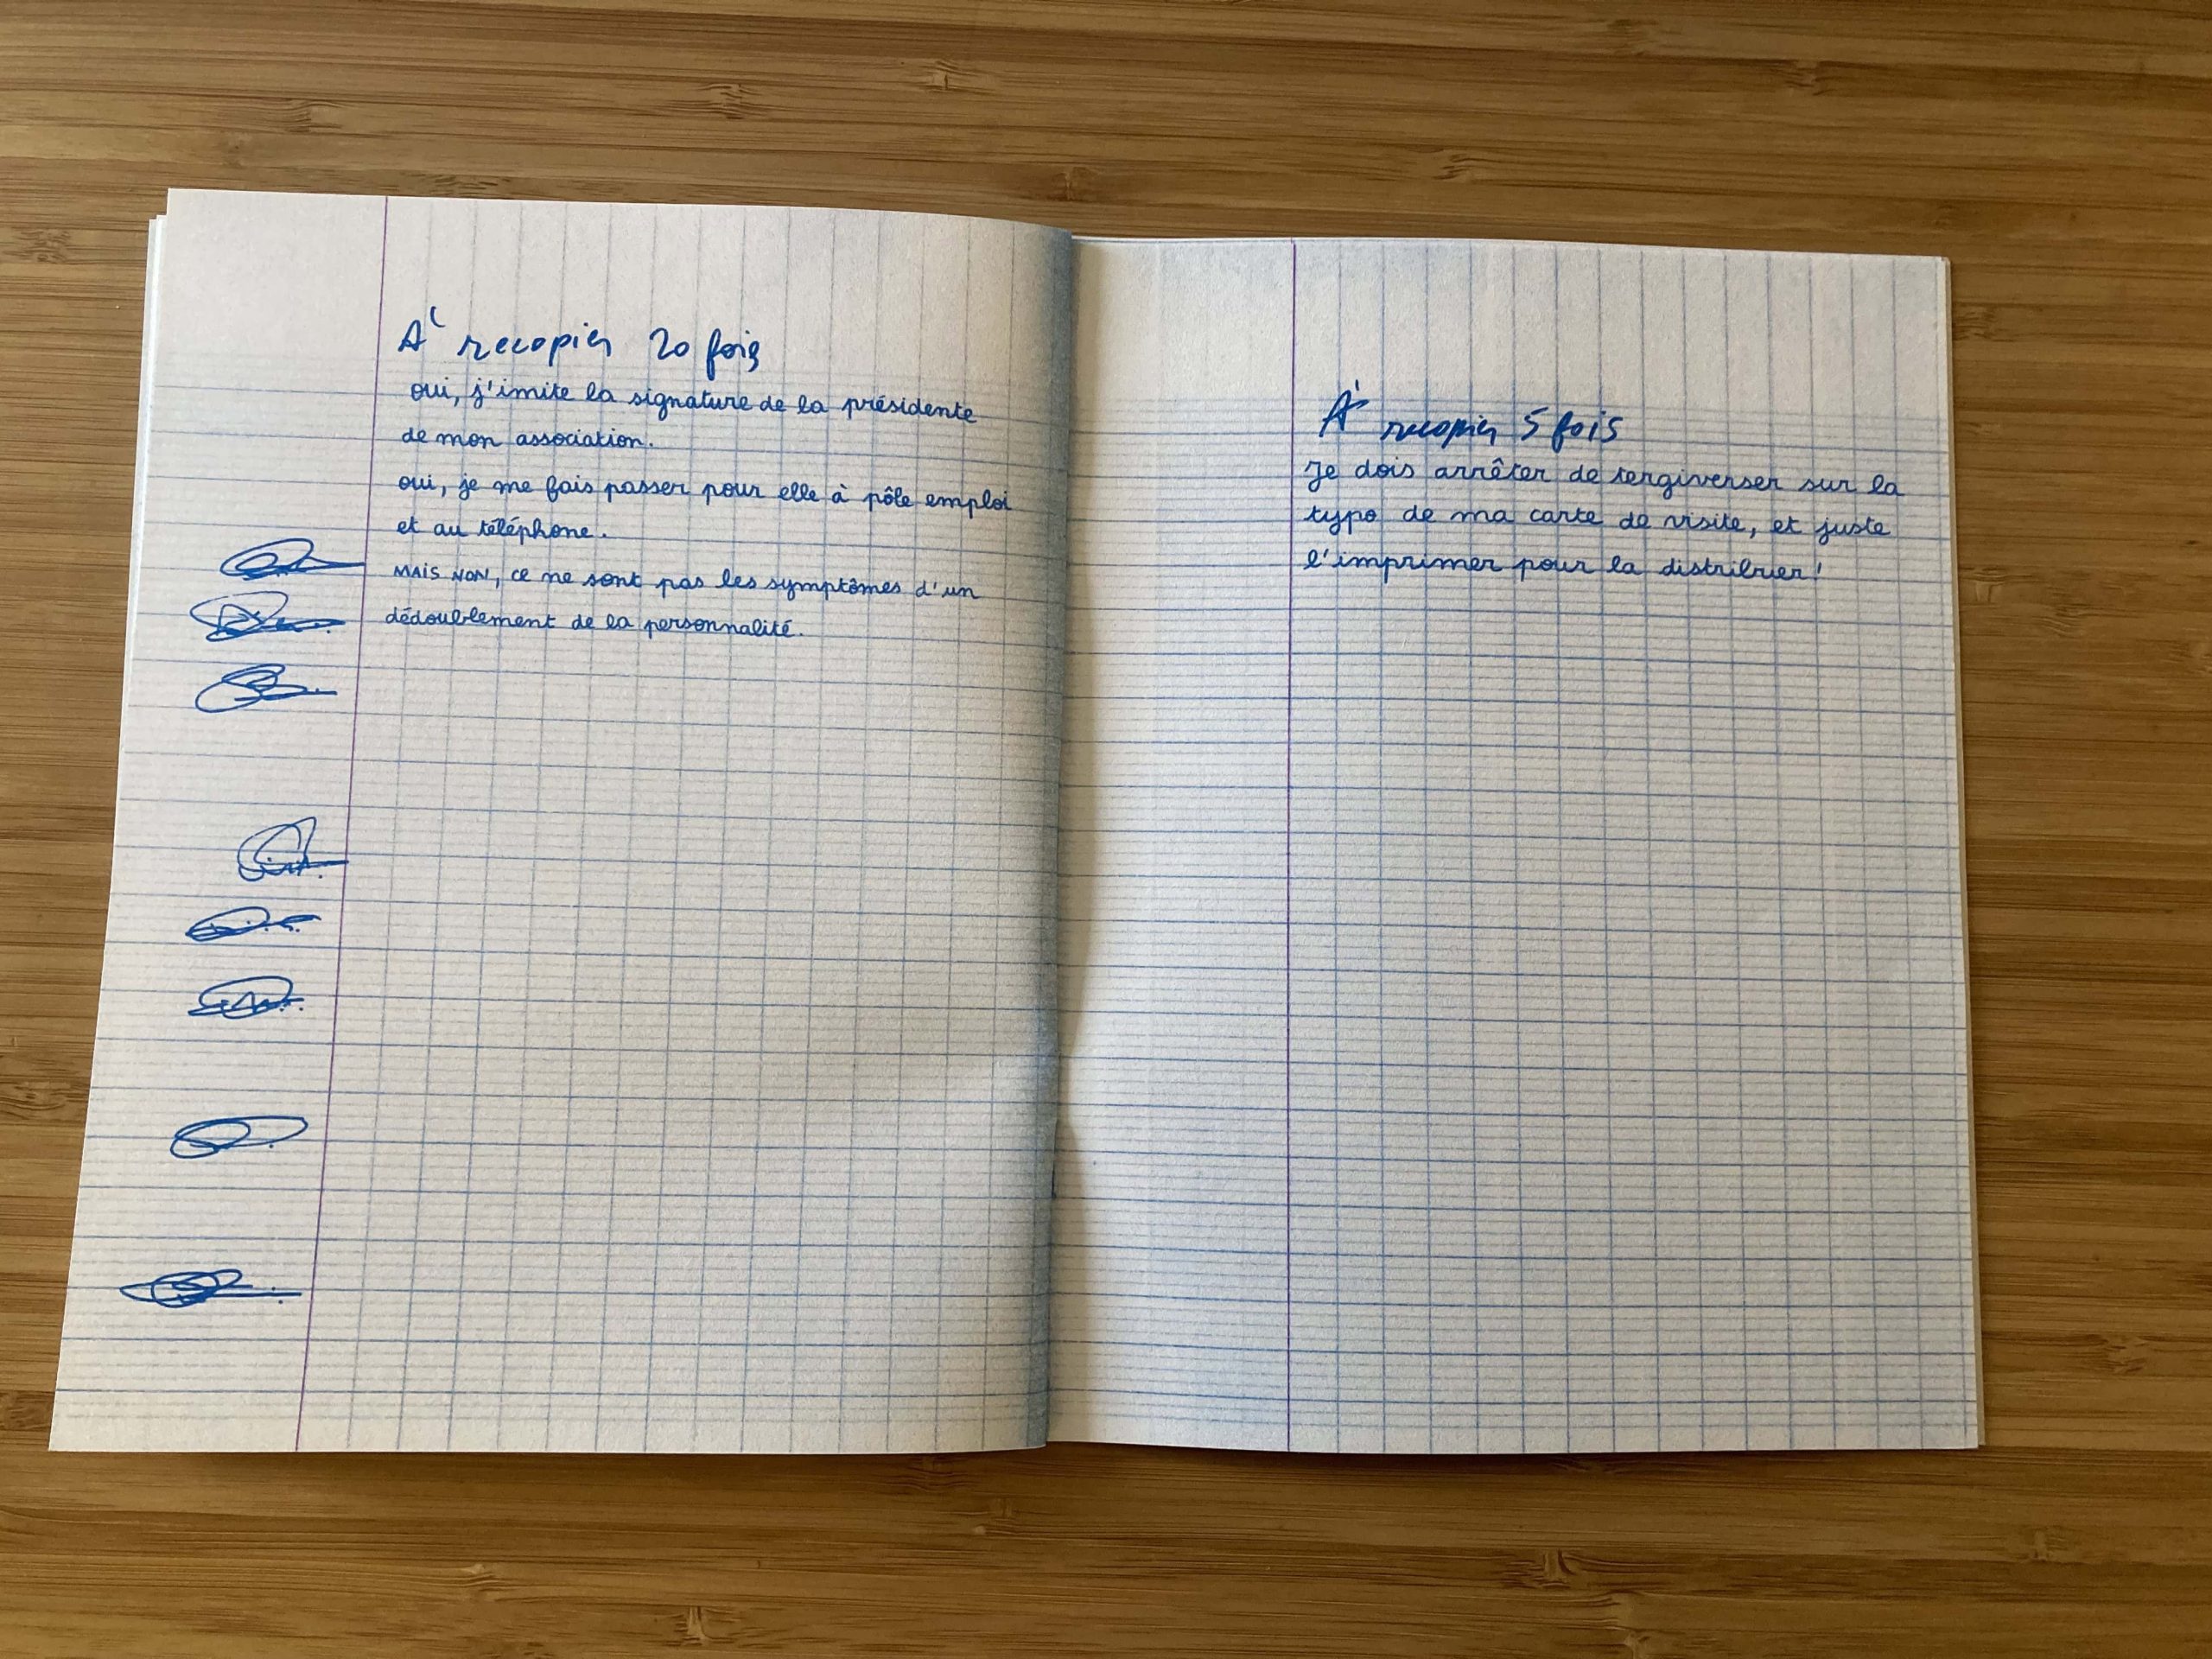 À recopier 20 fois
oui, j'imite la signature de la présidente
de mon association.
oui, je me fais passer pour elle à pôle emploi
et au téléphone.
MAIS NON, ce ne sont pas les symptômes d'un
dédoublement de la personnalité.
À recopier 5 fois
Je dois arrêter de tergiverser sur la
typo de ma carte de visite, et juste
l'imprimer pour la distribuer !